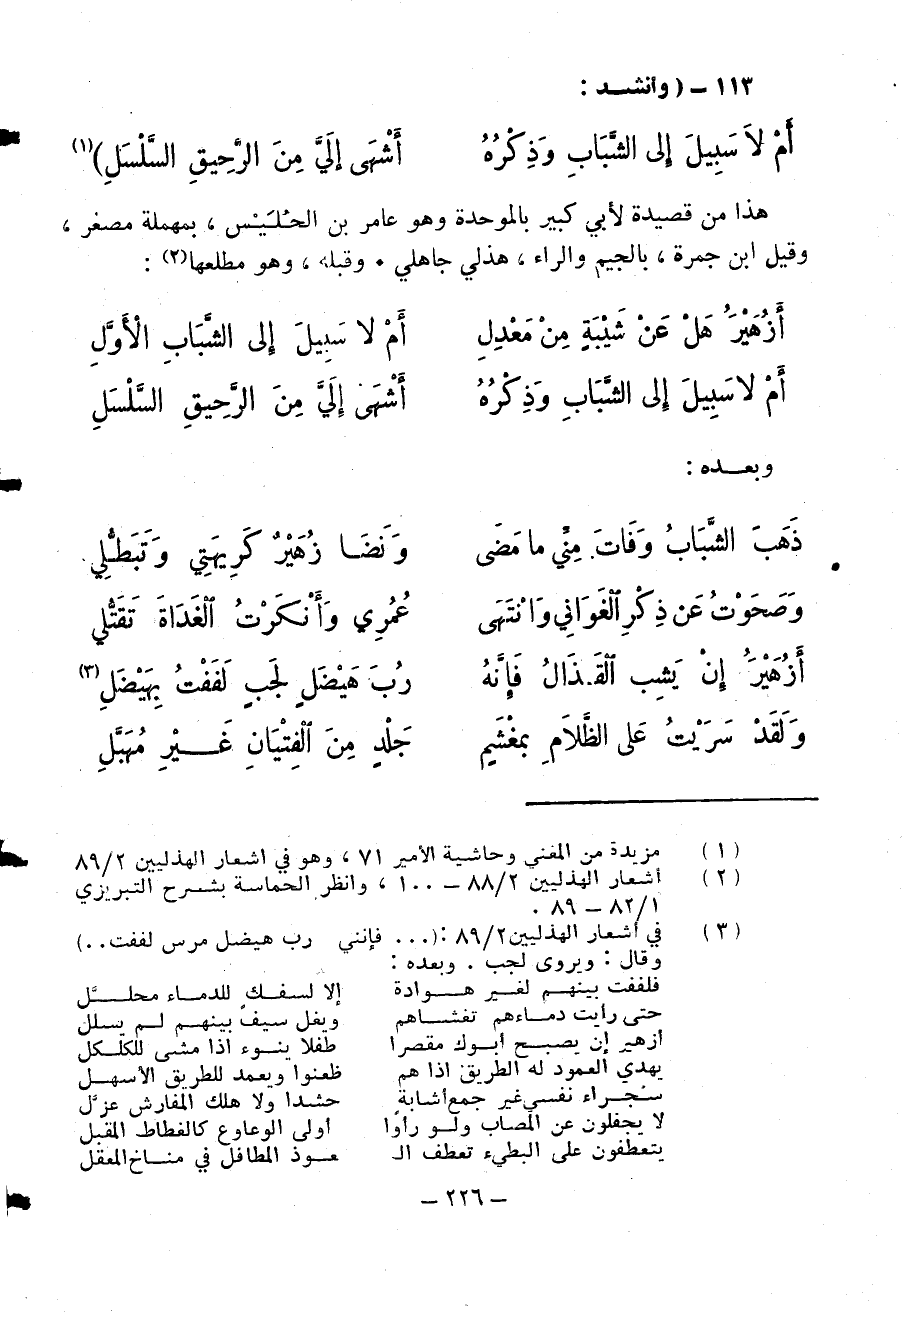 ١١٣ - (وأنشد :
أَمْ لاَ سَبِيلَ إلى الشَّبَابِ وَذِكْرُهُ أَشْهَى إلَيَّ مِنَ الرَّحِيقِ السَّلْسَلِ)(١)
هذا من قصيدة لأبي كبير بالموحدة وهو عامر بن الحُلَيْس ، بمهملة مصغر ،
وقيل ابن جمرة ، بالجيم والراء ، هذلي جاهلي . وقبله ، وهو مطلعها(٢) :
أَزُهَيْرَُ هَلْ عَنْ شَيْبَةٍ مِنْ مَعْدِلِ أَمْ لا سَبِيلَ إلى الشَّبَابِ الْأَوَّلِ
أَمْ لا سَبِيلَ إلى الشَّبَابِ وَذِكْرُهُ أَشْهَىٰ إلَيَّ مِنَ الرَّحِيقِ السَّلْسَلِ
وبعـــده :
ذَهَبَ الشَّبَابُ وَفَاتَ مِنِّي ما مَضَى وَنَضَا زُهَيْرُ كَرِيهَتِي وَتَبَطُّلِي
وَصَحَوْتُ عَن ذِكْرِ الْغَوَانِي وَانْتَهَى عُمُرِي وَأَنْكَرْتُ الْغَدَاةَ تَقَتُّلِي
أَزُهَيْرَُ إنْ يَشِبِ الْقَـذَالُ فَإِنَّهُ رُبَ هَيْضَلٍ لَجِبٍ لَفَفْتُ بِهَيْضَلِ(٣)
وَلَقَدْ سَرَيْتُ عَلى الظَّلاَمِ بِمغْشَمٍ جَلْدٍ مِنَ الْفِتْيَانِ غَـــيْرِ مُهَبَّلِ
(١) مزيدة من المغني وحاشية الأمير ٧١ ، وهو في اشعار الهذليين ٨٩/٢
(٢) أشعار الهذليين ٨٨/٢ - ١٠٠ ، وانظر الحماسة بشـرح التبريزي
٨٢/١ - ٨٩ .
(٣) في أشعار الهذليين ٨٩/٢ :(... فإنني رب هيضل مرس لففت..)
وقال : ويروى لجب . وبعده :
فلففت بينهـم لغـير هـــوادة إلا لسـفـك للدمـاء محلـــل
حتى رأيت دمـاءهم تغشـاهم ويفل سيف بينهـم لـم يسلل
أزهير إن يصبـح أبـوك مقصرا طفلا ينـوء اذا مشى للكلـكل
يهدي العمود له الطريق اذا هم ظعنوا ويعمد للطريق الأسهـل
سـجـراء نفسي غير جمع أشابةٍ حشدا ولا هلك المفارش عزّل
لا يجفلون عن المصاب ولـو رأوا أولى الوعاوع كالغطاط المقبل
يتعطفون على البطيء تعطف الـ عـوذ المطافل في منـاخ المعقل
- ٢٢٦ -